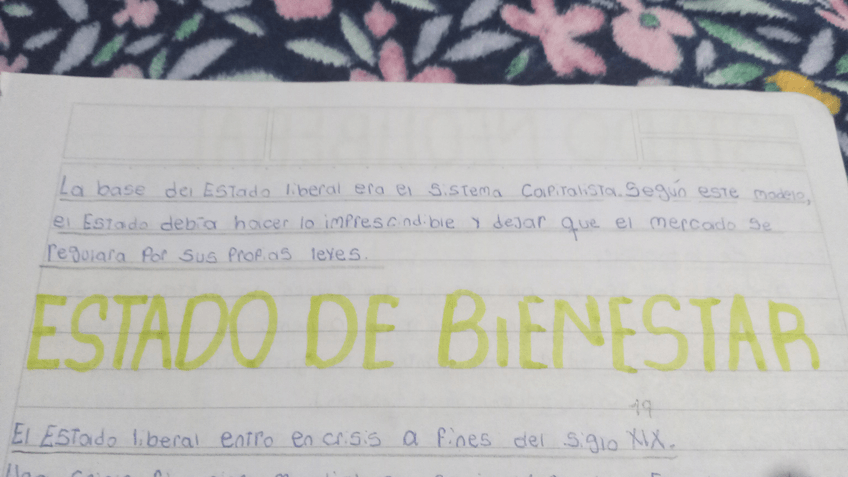 La base del Estado liberal era el sistema capitalista. Según este modelo,
el Estado debía hacer lo imprescindible y dejar que el mercado se
regulara por sus propias leyes.
ESTADO DE BIENESTAR
19
El Estado liberal entro en crisis a fines del siglo XIX.